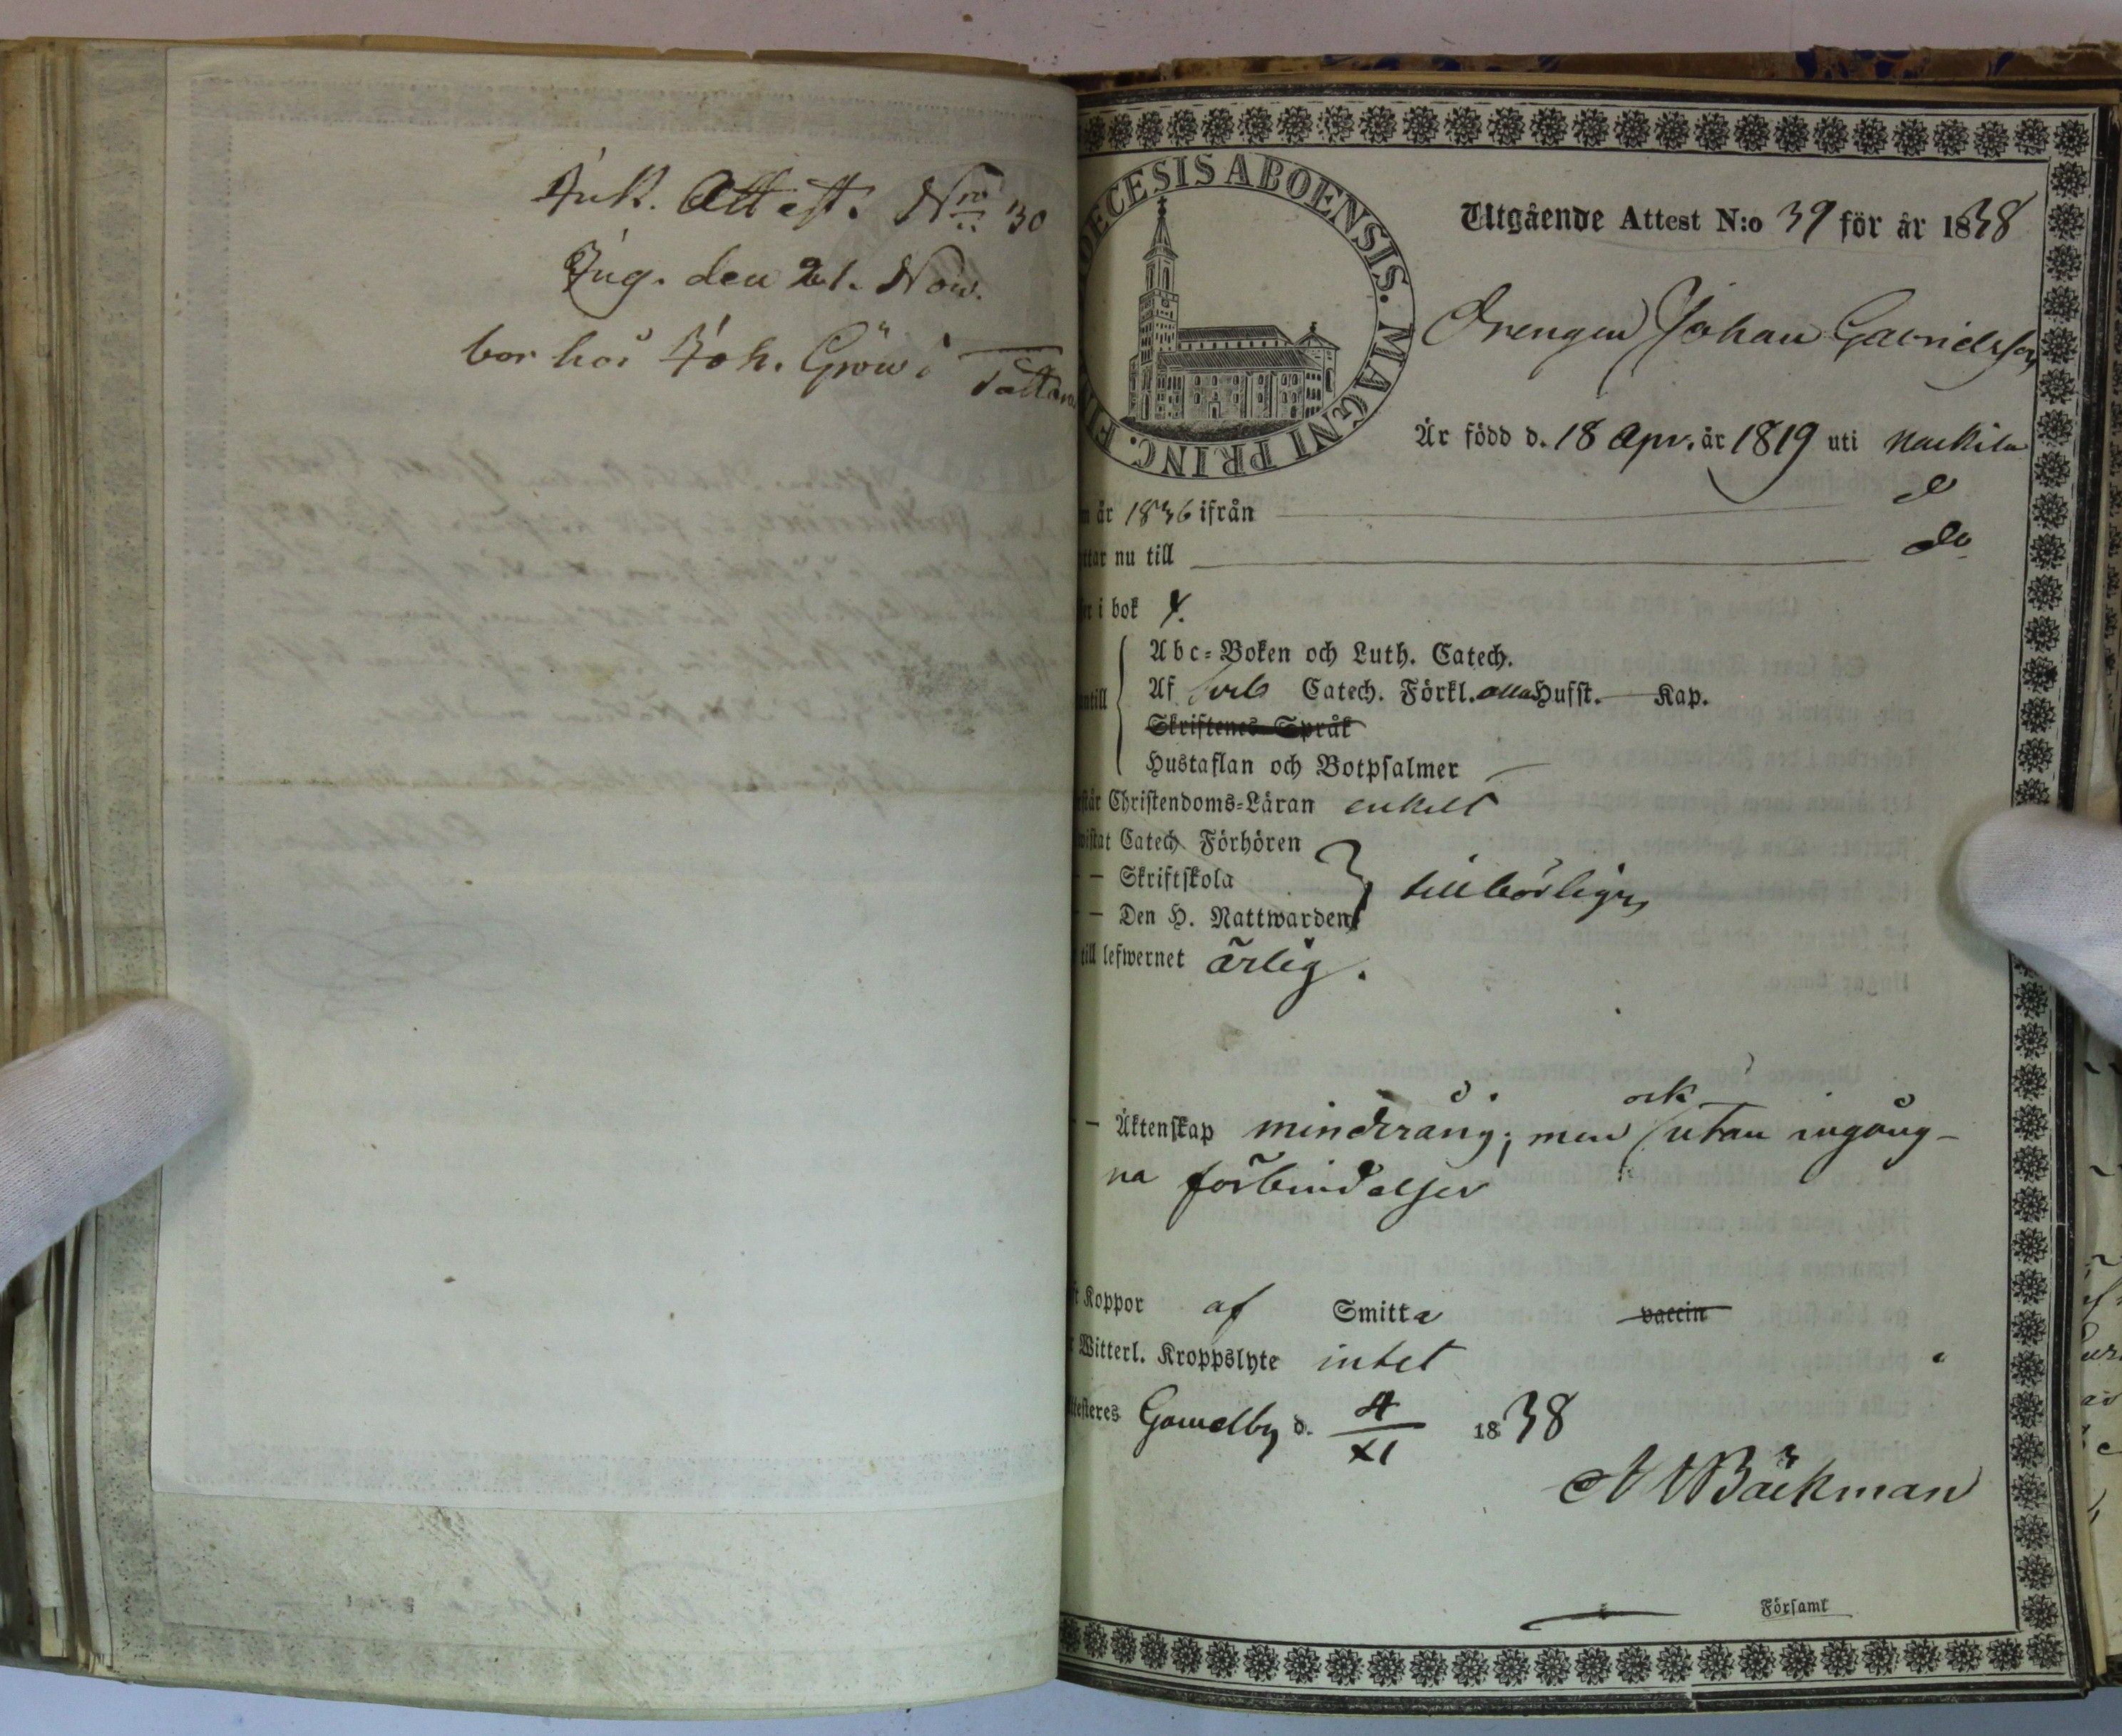 Ink. Attest. Nro 30
Ing. den 21. Nov.
bor hos Joh. Gröw i
DIOECESIS ABOENSIS. MAGNI PRINC. FIN
Utgående Attest N:o 39 för år 1838
Drengen Johan Gabrielsson
Är född d. 18 Apr. år 1819 uti Nackila
m år 1836 ifrån do
ttar nu till do
er i bok
Abc-Boken och Luth. Catech.
Af Sveb Catech. Förkl. alla Hufst. — Kap.
Skriftenes Språk
Hustaflan och Botpsalmer —
står Christendoms-Läran enkelt
wistat Catech Förhören
— Skriftskola
tillbörligen
— Den H. Nattwarden
till lefwernet ärlig.
— Äktenskap minderårig; men ock utan ingång-
na förbindelser
t Koppor af Smitta vaccin
Witterl. Kroppslyte intet
ttesteres Gamelby d. 4/XI 1838
Bäckman
Församl